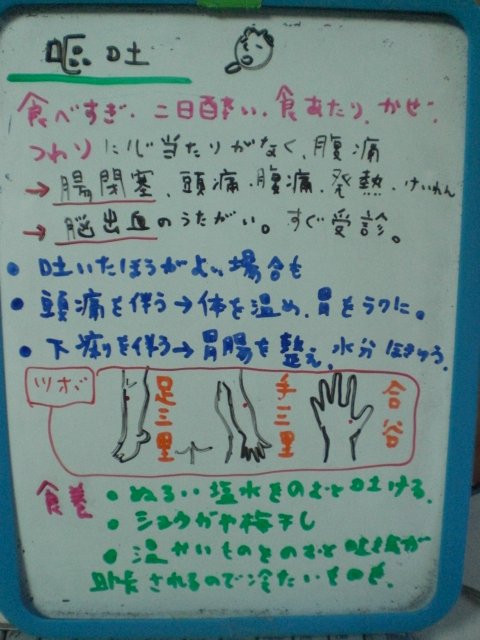 嘔吐
食べすぎ、二日酔い、食あたり、かぜ、
つわりに心当たりがなく、腹痛
→腸閉塞、頭痛、腹痛、発熱、けいれん
→脳出血のうたがい。すぐ受診。
• 吐いたほうがよい場合も
• 頭痛を伴う→体を温め、胃をラクに。
• 下痢を伴う→胃腸を整え、水分ほきゅう。
ツボ
足三里
手三里
合谷
食養
• ぬるい塩水をのむと吐ける。
• ショウガや梅干し
• 温かいものをのむと吐き気が
助長されるので冷たいものを。